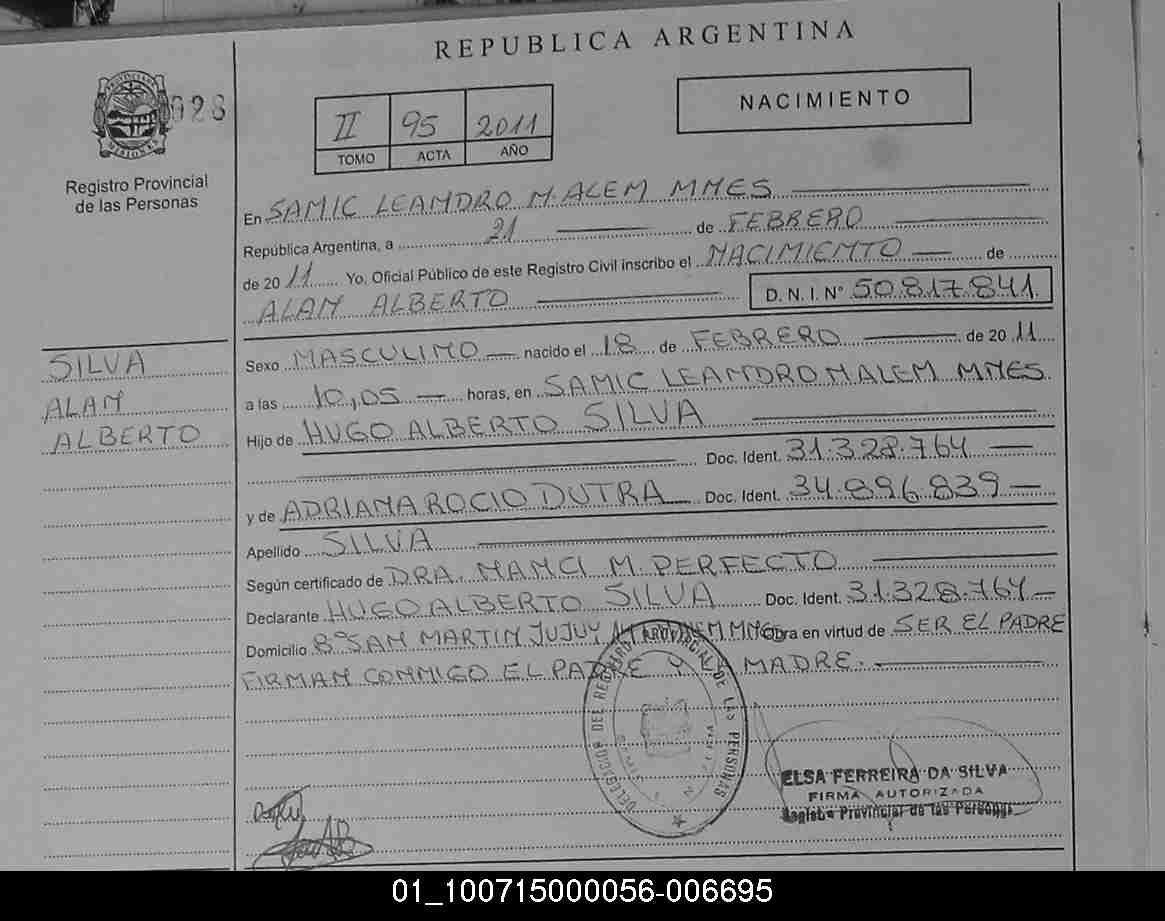 REPUBLICA ARGENTINA
028
MISIONES
Registro Provincial
de las Personas
II 95 2011
TOMO ACTA AÑO
NACIMIENTO
En SAMIC LEANDRO N. ALEM MNES
República Argentina, a 21 de FEBRERO
de 2011 Yo. Oficial Público de este Registro Civil inscribo el NACIMIENTO de
ALAN ALBERTO D. N. I. N° 50.817.841
SILVA
ALAN
ALBERTO
Sexo MASCULINO nacido el 18 de FEBRERO de 2011
a las 10,05 horas, en SAMIC LEANDRO N ALEM MNES
Hijo de HUGO ALBERTO SILVA
Doc. Ident. 31.328.764
y de ADRIANA ROCIO DUTRA Doc. Ident. 34.896.839
Apellido SILVA
Según certificado de DRA. NANCI M. PERFECTO
Declarante HUGO ALBERTO SILVA Doc. Ident. 31.328.764
Domicilio Bº SAN MARTIN JUJUY MNES Obra en virtud de SER EL PADRE
FIRMAN CONMIGO EL PADRE Y LA MADRE.
REGISTRO PROVINCIAL DE LAS PERSONAS
ELSA FERREIRA DA SILVA
FIRMA AUTORIZADA
Registro Provincial de las Personas
01_100715000056-006695